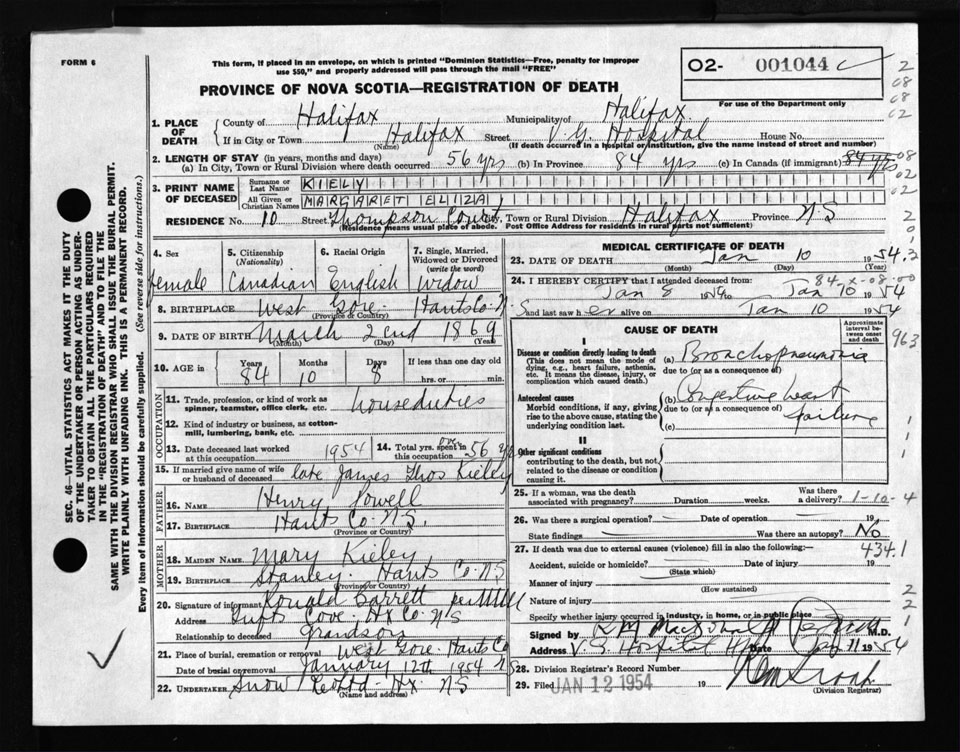 FORM 6
This form, if placed in an envelope, on which is printed "Dominion Statistics—Free, penalty for improper
use $50," and properly addressed will pass through the mail "FREE"
O2- 001044 c
For use of the Department only
PROVINCE OF NOVA SCOTIA—REGISTRATION OF DEATH
1. PLACE OF DEATH
County of Halifax Municipality of Halifax
If in City or Town Halifax Street V.G. Hospital House No.
(Name) (If death occurred in a hospital or institution, give the name instead of street and number)
2. LENGTH OF STAY (in years, months and days)
(a) In City, Town or Rural Division where death occurred 56 yrs (b) In Province 84 yrs (c) In Canada (if immigrant) 84 yrs
3. PRINT NAME OF DECEASED
Surname or Last Name KIELY
All Given or Christian Names MARGARET ELIZA
RESIDENCE No. 10 Street Thompson Court City, Town or Rural Division Halifax Province N S
(Residence means usual place of abode. Post Office Address for residents in rural parts not sufficient)
4. Sex
female
5. Citizenship (Nationality)
Canadian
6. Racial Origin
English
7. Single, Married, Widowed or Divorced (write the word)
Widow
8. BIRTHPLACE West Gore Hants Co N.
(Province or Country)
9. DATE OF BIRTH March 2nd 1869
(Month) (Day) (Year)
10. AGE in
Years 84 Months 10 Days 8 If less than one day old
hrs. or min.
OCCUPATION
11. Trade, profession, or kind of work as spinner, teamster, office clerk, etc. houseduties
12. Kind of industry or business, as cotton-mill, lumbering, bank, etc.
13. Date deceased last worked at this occupation 1954
14. Total yrs. spent in this occupation 56 yrs
15. If married give name of wife or husband of deceased late James Thos Kieley
FATHER
16. NAME Henry Powell
17. BIRTHPLACE Hants Co. N.S.
(Province or Country)
MOTHER
18. MAIDEN NAME Mary Kieley
19. BIRTHPLACE Stanley. Hants Co. N S
(Province or Country)
20. Signature of informant Ronald Barrett per
Address Tufts Cove, Hx Co N S
Relationship to deceased Grandson
21. Place of burial, cremation or removal West Gore Hants Co
Date of burial or removal January 12th 1954 N S
22. UNDERTAKER Snow & Co Ltd - Hx. N S
(Name and address)
MEDICAL CERTIFICATE OF DEATH
23. DATE OF DEATH Jan 10 1954
(Month) (Day) (Year)
24. I HEREBY CERTIFY that I attended deceased from:
Jan 8 1954 to Jan 10 1954
and last saw her alive on Jan 10 1954
CAUSE OF DEATH
Approximate interval between onset and death
I
Disease or condition directly leading to death
(This does not mean the mode of dying, e.g., heart failure, asthenia, etc. It means the disease, injury, or complication which caused death.)
(a) Bronchopneumonia
due to (or as a consequence of)
Antecedent causes
Morbid conditions, if any, giving rise to the above cause, stating the underlying condition last.
(b) Congestive heart failure
due to (or as a consequence of)
(c)
II
Other significant conditions
contributing to the death, but not related to the disease or condition causing it.
25. If a woman, was the death associated with pregnancy? Duration weeks. Was there a delivery? 1-10-4
26. Was there a surgical operation? Date of operation 19
State findings Was there an autopsy? No
27. If death was due to external causes (violence) fill in also the following:— 434.1
Accident, suicide or homicide? Date of injury 19
(State which)
Manner of injury
(How sustained)
Nature of injury
Specify whether injury occurred in industry, in home, or in public place
Signed by M.D.
Address V.G. Hospital Date Jan 11 1954
28. Division Registrar's Record Number
29. Filed JAN 12 1954 19
(Division Registrar)
SEC. 46—VITAL STATISTICS ACT MAKES IT THE DUTY
OF THE UNDERTAKER OR PERSON ACTING AS UNDER-
TAKER TO OBTAIN ALL THE PARTICULARS REQUIRED
IN THE "REGISTRATION OF DEATH" AND TO FILE THE
SAME WITH THE DIVISION REGISTRAR WHO SHALL ISSUE THE BURIAL PERMIT.
WRITE PLAINLY WITH UNFADING INK. THIS IS A PERMANENT RECORD.
Every item of information should be carefully supplied. (See reverse side for instructions.)
963